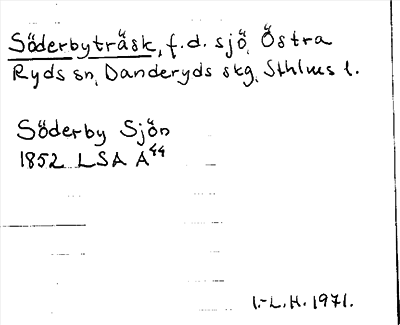 Söderbyträsk, f.d. sjö, Östra
Ryds sn, Danderyds skg, Sthlms l.
Söderby Sjön
1852 LSA A44
I.-L.H. 1971.